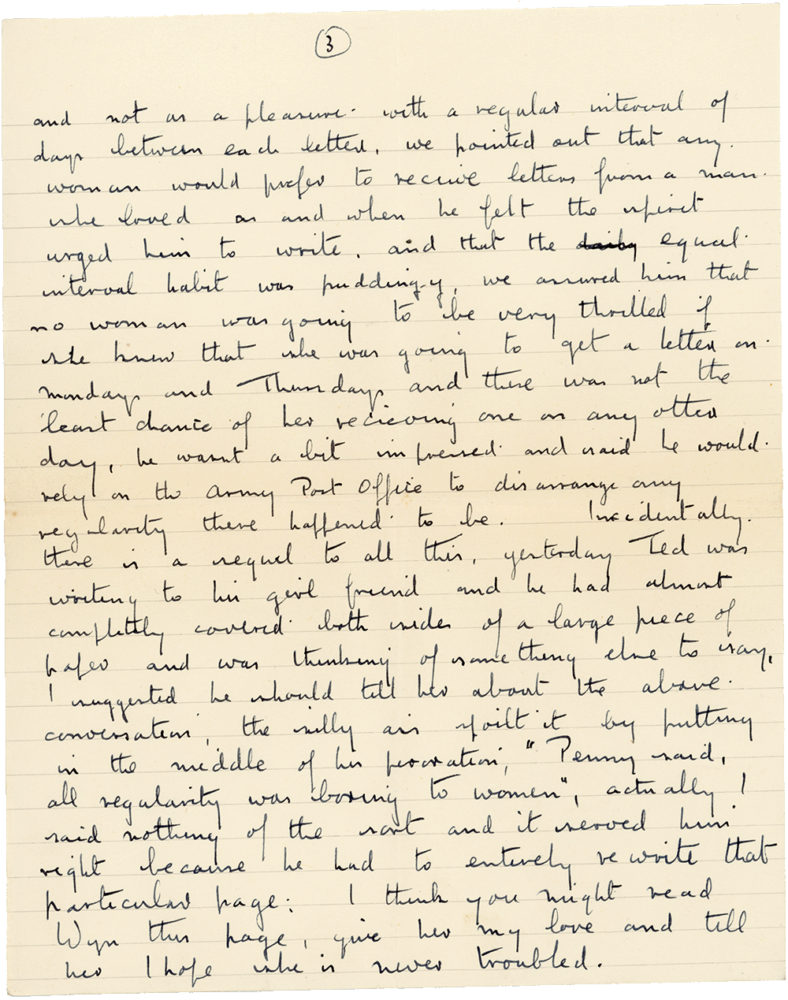 3
and not as a pleasure. with a regular interval of
days between each letter, we pointed out that any.
woman would prefer to receive letters from a man.
she loved as and when he felt the spirit
urged him to write, and that the daily equal.
interval habit was pudding-y, we assured him that
no woman was going to be very thrilled if
she knew that she was going to get a letter on.
mondays and Thursdays and there was not the
least chance of her recieving one on any other
day, he wasnt a bit impressed and said he would.
rely on the Army Post Office to disarrange any
regularity there happened to be. Incidentally.
there is a sequel to all this, yesterday Ted was
writing to his girl friend and he had almost
completely covered both sides of a large piece of
paper and was thinking of something else to say,
I suggested he should tell her about the above.
conversation, the silly ass spoilt it by putting
in the middle of his peroration, "Penny said,
all regularity was boring to women", actually I
said nothing of the sort and it served him
right because he had to entirely rewrite that
particular page: I think you might read
Wyn this page, give her my love and tell
her I hope she is never troubled.